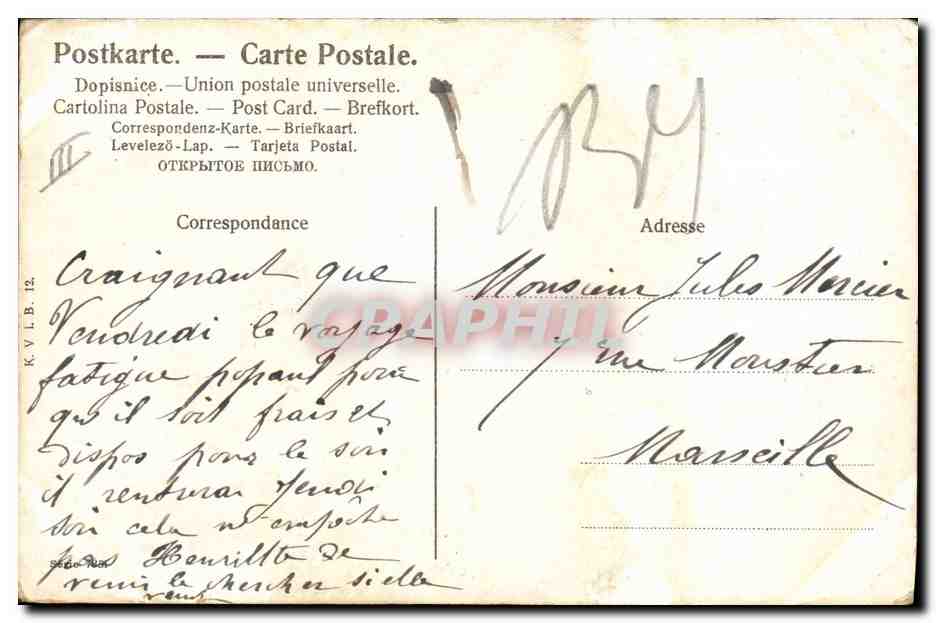 Postkarte. — Carte Postale.
Dopisnice. — Union postale universelle.
Cartolina Postale. — Post Card. — Brefkort.
Correspondenz-Karte. — Briefkaart.
Levelező-Lap. — Tarjeta Postal.
ОТКРЫТОЕ ПИСЬМО.
III
Correspondance
Craignant que
Vendredi le voyage
fatigue papaul pour
qu'il soit frais et
dispos pour le soir
il rentrera Jeudi
soir cela n'empêche
pas Henriette de
venir le chercher si elle
veut
K. V. i. B. 12.
Série
Adresse
Monsieur Jules Mercier
7 rue Moustier
Marseille
CPAPHIL